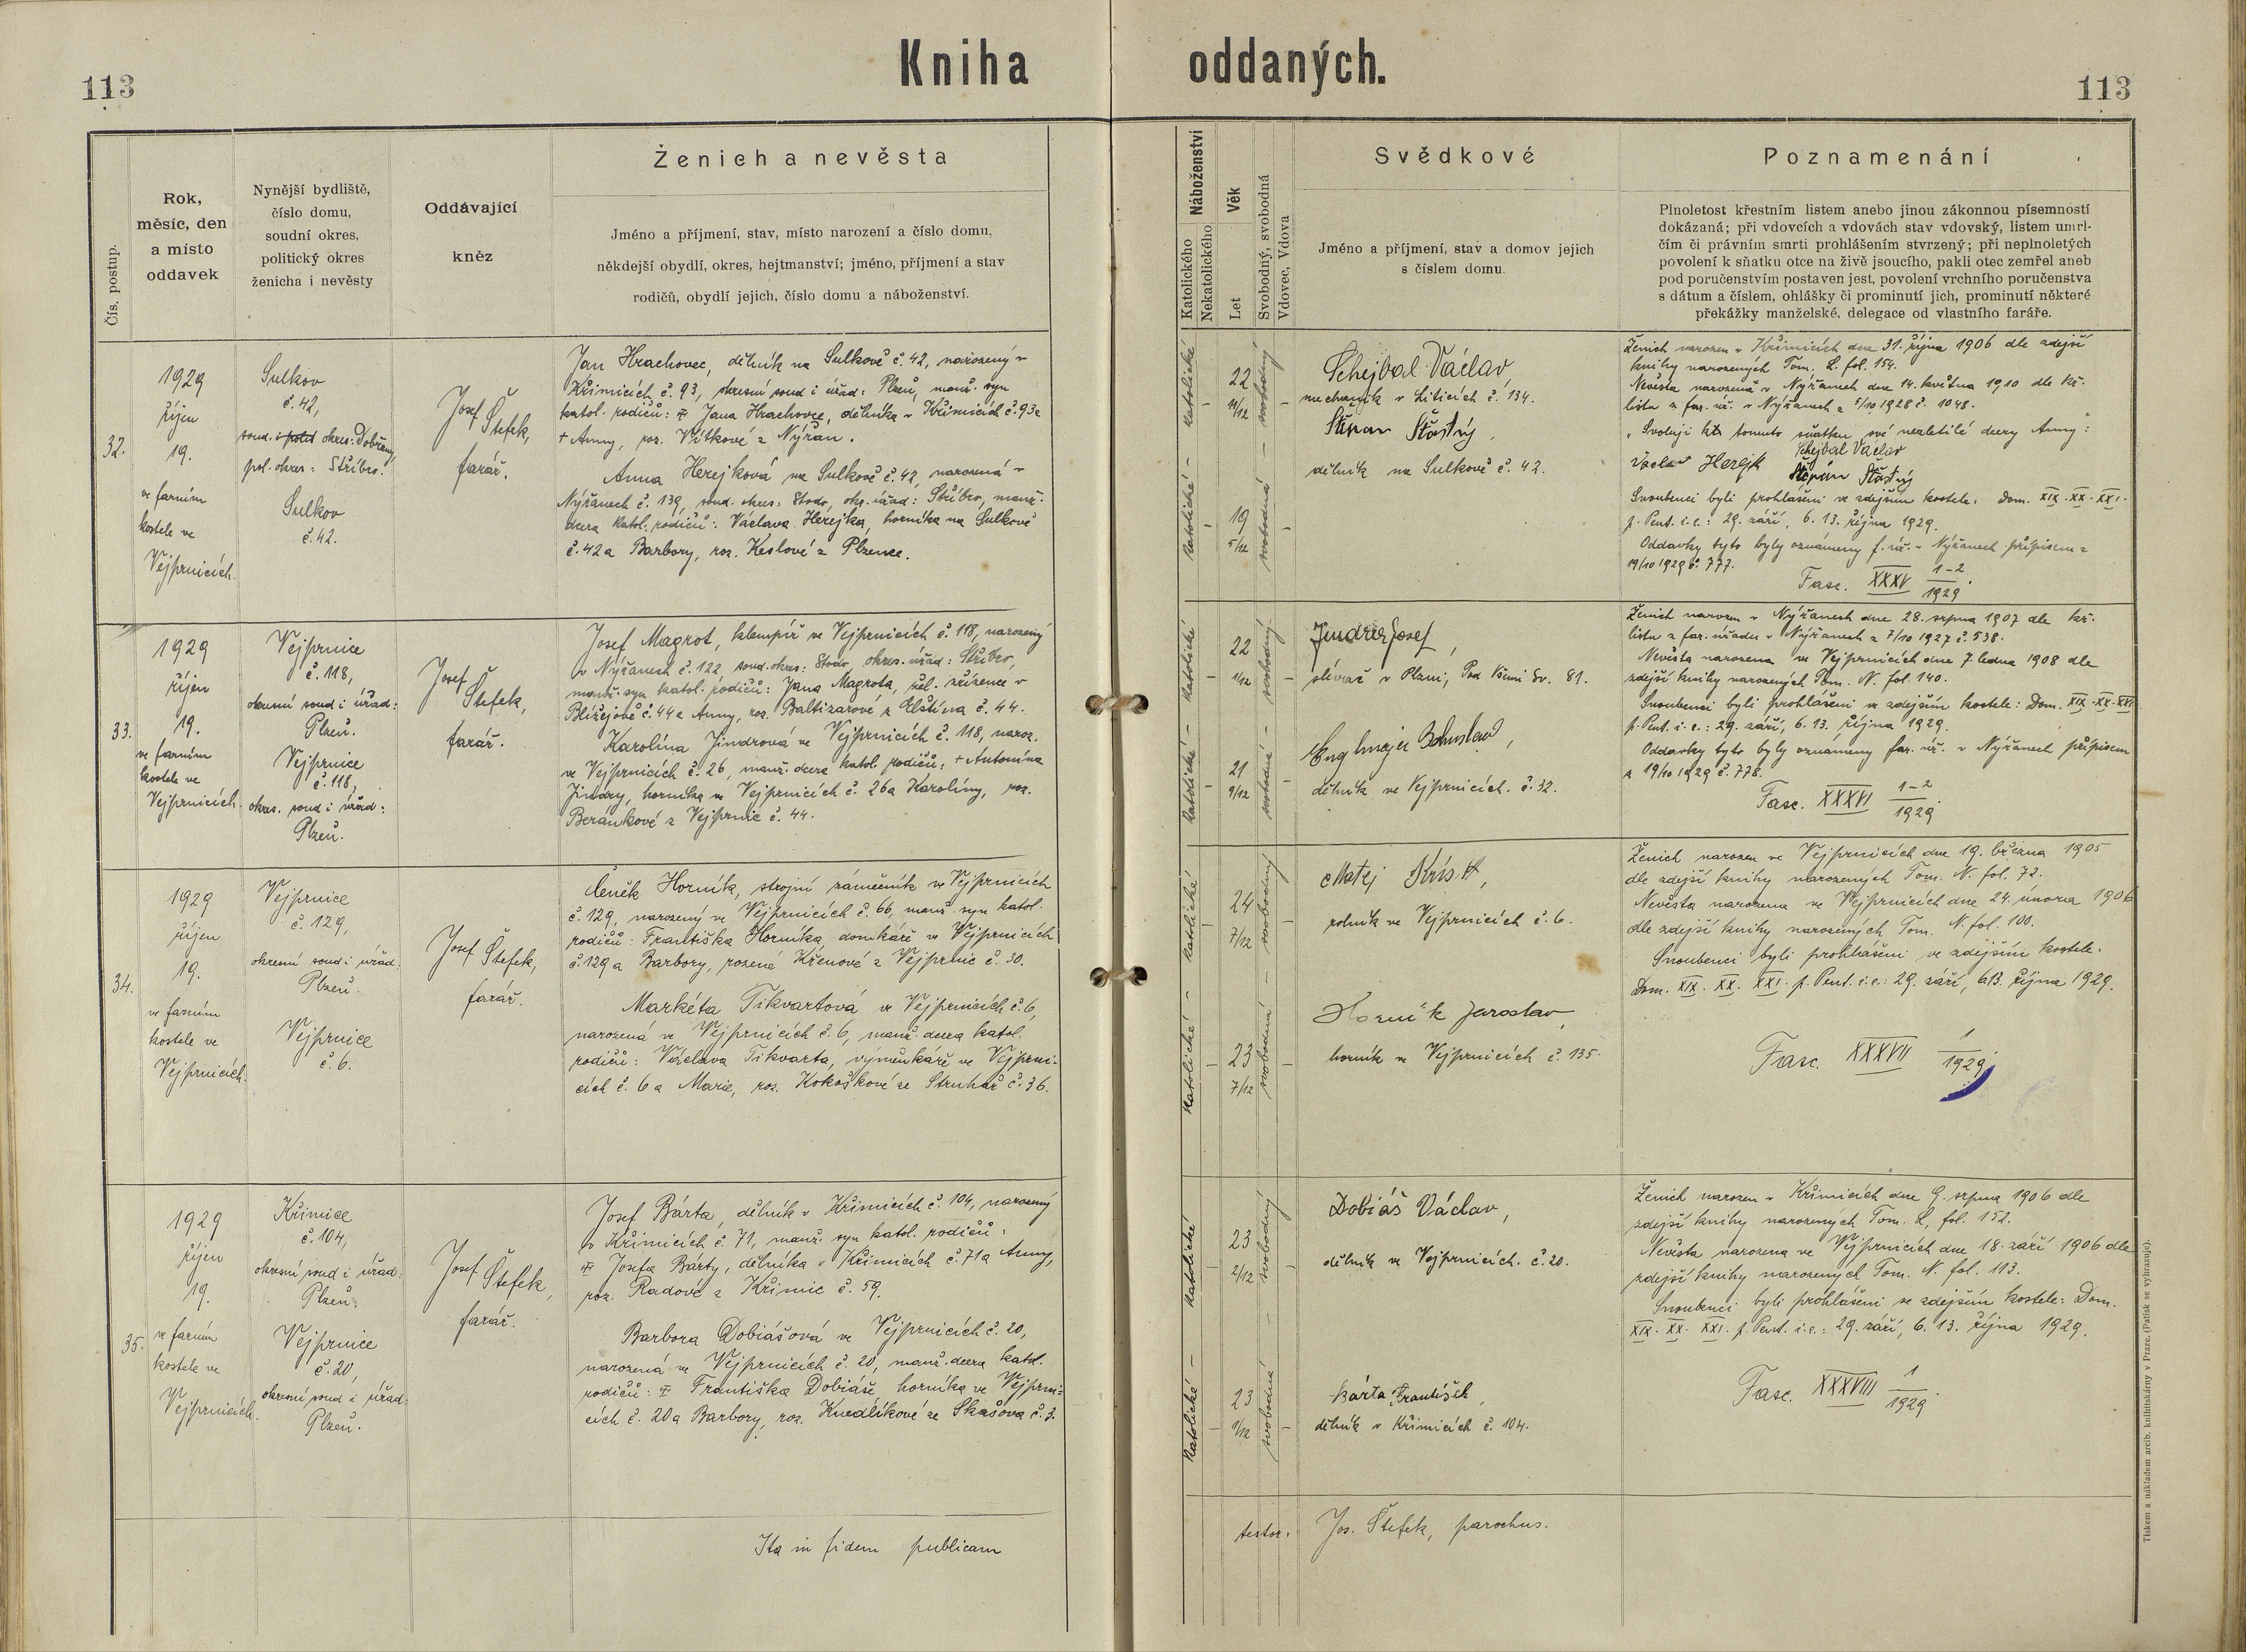 Kniha oddaných.
113
113
Čís. postup.
Rok,
měsíc, den
a místo
oddavek
Nynější bydliště,
číslo domu,
soudní okres,
politický okres
ženicha i nevěsty
Oddávající
kněz
Ženich a nevěsta
Jméno a příjmení, stav, místo narození a číslo domu,
někdejší obydlí, okres, hejtmanství; jméno, příjmení a stav
rodičů, obydlí jejich, číslo domu a náboženství.
Náboženství
Katolického
Nekatolického
Věk
Let
Svobodný, svobodná
Vdovec, Vdova
Svědkové
Jméno a příjmení, stav a domov jejich
s číslem domu.
Poznamenání
Plnoletost křestním listem anebo jinou zákonnou písemností
dokázaná; při vdovcích a vdovách stav vdovský, listem úmrt-
čím či právním smrti prohlášením stvrzený; při neplnoletých
povolení k sňatku otce na živě jsoucího, pakli otec zemřel aneb
pod poručenstvím postaven jest, povolení vrchního poručenstva
s dátum a číslem, ohlášky či prominutí jich, prominutí některé
překážky manželské, delegace od vlastního faráře.
32.
1929
říjen
19.
ve farním
kostele ve
Vejprnicích.
Sulkov
č. 42,
soud. i polit okres: Dobřany
pol. okres: Stříbro.
Sulkov
č. 42.
Josef
Štefek,
farář.
Jan Hrachovec, dělník na Sulkově č. 42, narozený v
Křimicích č. 93, okresní soud i úřad: Plzeň, manž. syn
katol. rodičů: Jana Hrachovce, dělníka v Křimicích č. 93 a
+ Anny, roz. Vítkové z Nýřan.
Anna Herejková na Sulkově č. 42, narozená v
Nýřanech č. 139, soud. okres: Stodo, okr. úřad: Stříbro, manž.
dcera katol. rodičů: Václava Herejka, horníka na Sulkově
č. 42 a Barbory, roz. Keslové z Plzence.
katolické – katolické
22
11/12
19
5/12
svobodný
svobodná
Schejbal Václav,
mechanik v Liticích č. 134.
Štěpán Šťastný,
dělník na Sulkově č. 42.
Ženich narozen v Křimicích dne 31. října 1906 dle zdejší
knihy narozených Tom. L. fol. 154.
Nevěsta narozená v Nýřanech dne 14. května 1910 dle kř.
listu z far. úř. v Nýřanech z 5/10 1928 č. 1048.
"Svoluji k tomuto sňatku své nezletilé dcery Anny":
Schejbal Václav
Václav Herejk Štěpán Šťastný
Snoubenci byli prohlášeni ve zdejším kostele: Dom. XIX. XX. XXI.
p. Pent. i.e.: 29. září, 6. 13. října 1929.
Oddavky tyto byly oznámeny f. úř. v Nýřanech přípisem z
19/10 1929 č. 777.
Fasc. XXXV 1-2/1929.
33.
1929
říjen
19.
ve farním
kostele ve
Vejprnicích.
Vejprnice
č. 118,
okresní soud i úřad:
Plzeň.
Vejprnice
č. 118,
okres. soud i úřad:
Plzeň.
Josef
Štefek,
farář.
Josef Magrot, klempíř ve Vejprnicích č. 118, narozený
v Nýřanech č. 122, soud. okres: Stodo, okres. úřad: Stříbro,
manž. syn katol. rodičů: Jana Magrota, žel. zřízence v
Blížejově č. 44 a Anny, roz. Baltizarové z Elštína č. 44.
Karolína Jindrová ve Vejprnicích č. 118, naroz.
ve Vejprnicích č. 26, manž. dcera katol. rodičů: + Antonína
Jindry, horníka ve Vejprnicích č. 26 a Karolíny, roz.
Beránkové z Vejprnic č. 44.
katolické – katolické
22
1/12
21
9/12
svobodný
svobodná
Jindra Josef,
slévač v Plzni, Pod Všemi Sv. 81.
Englmajer Bohuslav,
dělník ve Vejprnicích. č. 32.
Ženich narozen v Nýřanech dne 28. srpna 1907 dle kř.
listu z far. úřadu v Nýřanech z 7/10 1927 č. 538.
Nevěsta narozena ve Vejprnicích dne 7. ledna 1908 dle
zdejší knihy narozených Tom. N. fol. 140.
Snoubenci byli prohlášeni ve zdejším kostele: Dom. XIX. XX. XXI.
p. Pent. i.e.: 29. září, 6. 13. října 1929.
Oddavky tyto byly oznámeny far. úř. v Nýřanech přípisem
z 19/10 1929 č. 778.
Fasc. XXXVI 1-2/1929.
34.
1929
říjen
19.
ve farním
kostele ve
Vejprnicích.
Vejprnice
č. 129,
okresní soud i úřad:
Plzeň.
Vejprnice
č. 6.
Josef
Štefek,
farář.
Čeněk Horník, strojní zámečník ve Vejprnicích
č. 129, narozený ve Vejprnicích č. 66, manž. syn katol.
rodičů: Františka Horníka, domkáře ve Vejprnicích
č. 129 a Barbory, rozené Křenové z Vejprnic č. 30.
Markéta Tikvartová ve Vejprnicích č. 6,
narozená ve Vejprnicích č. 6, manž. dcera katol.
rodičů: Václava Tikvarta, výměnkáře ve Vejprni-
cích č. 6 a Marie, roz. Kokoškové ze Struhař č. 36.
katolické – katolické
24
7/12
23
7/12
svobodný
svobodná
Matej Krist,
rolník ve Vejprnicích č. 6.
Horník Jaroslav,
horník ve Vejprnicích č. 135.
Ženich narozen ve Vejprnicích dne 19. března 1905
dle zdejší knihy narozených Tom. N. fol. 72.
Nevěsta narozena ve Vejprnicích dne 24. února 1906
dle zdejší knihy narozených Tom. N. fol. 100.
Snoubenci byli prohlášeni ve zdejším kostele:
Dom. XIX. XX. XXI. p. Pent. i.e.: 29. září, 6. 13. října 1929.
Fasc. XXXVII 1/1929.
35.
1929
říjen
19.
ve farním
kostele ve
Vejprnicích.
Křimice
č. 104,
okresní soud i úřad:
Plzeň.
Vejprnice
č. 20,
okresní soud i úřad:
Plzeň.
Josef
Štefek,
farář.
Josef Bárta, dělník v Křimicích č. 104, narozený
v Křimicích č. 71, manž. syn katol. rodičů:
Josefa Bárty, dělníka v Křimicích č. 71 a Anny,
roz. Radové z Křimic č. 59.
Barbora Dobiášová ve Vejprnicích č. 20,
narozená ve Vejprnicích č. 20, manž. dcera katol.
rodičů: Františka Dobiáše, horníka ve Vejprni-
cích č. 20 a Barbory, roz. Knedlíkové ze Skašova č. 3.
katolické – katolické
23
2/12
23
1/12
svobodný
svobodná
Dobiáš Václav,
dělník ve Vejprnicích. č. 20.
Bárta František,
dělník v Křimicích č. 104.
Ženich narozen v Křimicích dne 9. srpna 1906 dle
zdejší knihy narozených Tom. L, fol. 152.
Nevěsta narozena ve Vejprnicích dne 18. září 1906 dle
zdejší knihy narozených Tom. N. fol. 113.
Snoubenci byli prohlášeni ve zdejším kostele: Dom.
XIX. XX. XXI. p. Pent. i.e.: 29. září, 6. 13. října 1929.
Fasc. XXXVIII 1/1929.
Ita in fidem publicam
testor: Jos. Štefek, parochus.
Tiskem a nákladem arcib. knihtiskárny v Praze. (Patisk se vyhrazuje).